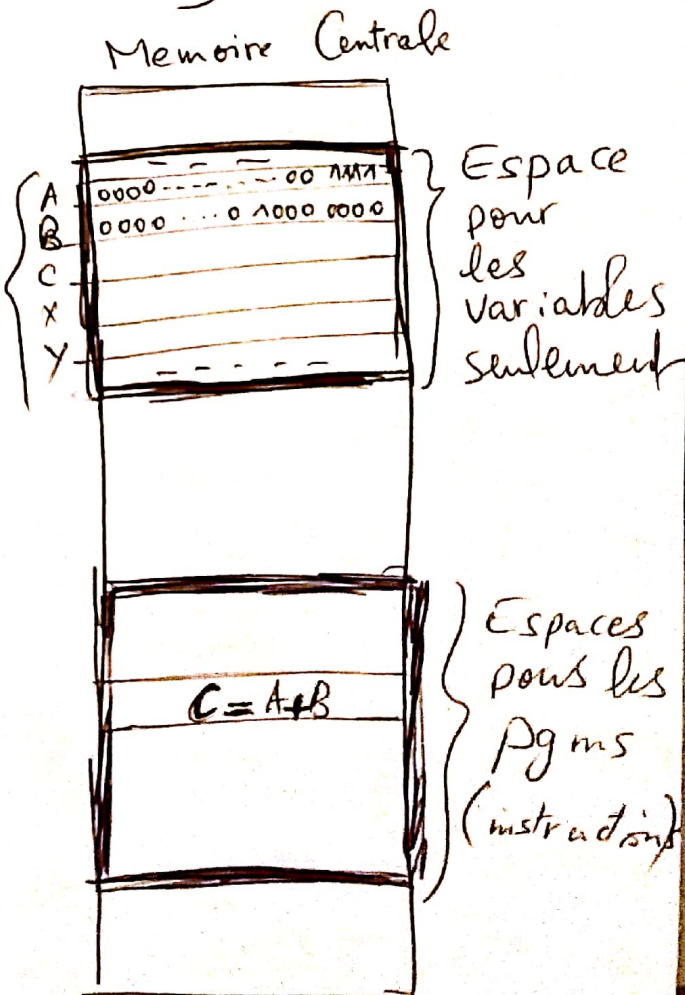 Memoire Centrale
— — —
A 0000 - - - - - - - 00 1111
B 0000 ... 0 1000 0000
C
X
Y
— - - -
Espace
pour
les
variables
seulement
C = A+B
Espaces
pous les
pgms
(instructions)